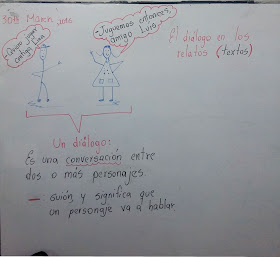 Marzo
Quiero jugar
contigo
-Juguemos entonces,
amigo
Luis.
El diálogo en los
relatos (textos)
Un diálogo:
Es una conversación entre
dos o más personajes
— : guión y significa que
un personaje va a hablar